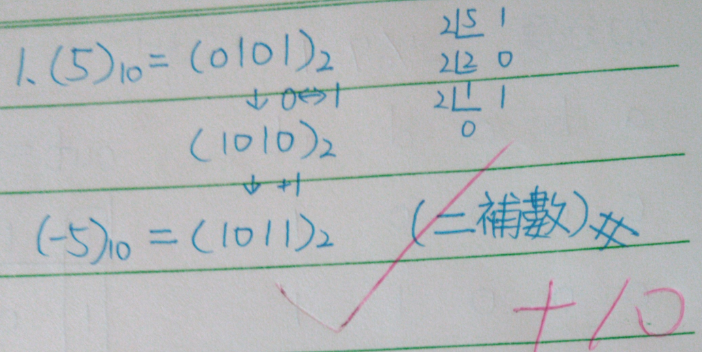 1. (5)₁₀ = (0101)₂
↓ 0⇔1
(1010)₂
↓ +1
(-5)₁₀ = (1011)₂ (二補數)
2|5 1
2|2 0
2|1 1
0
+10